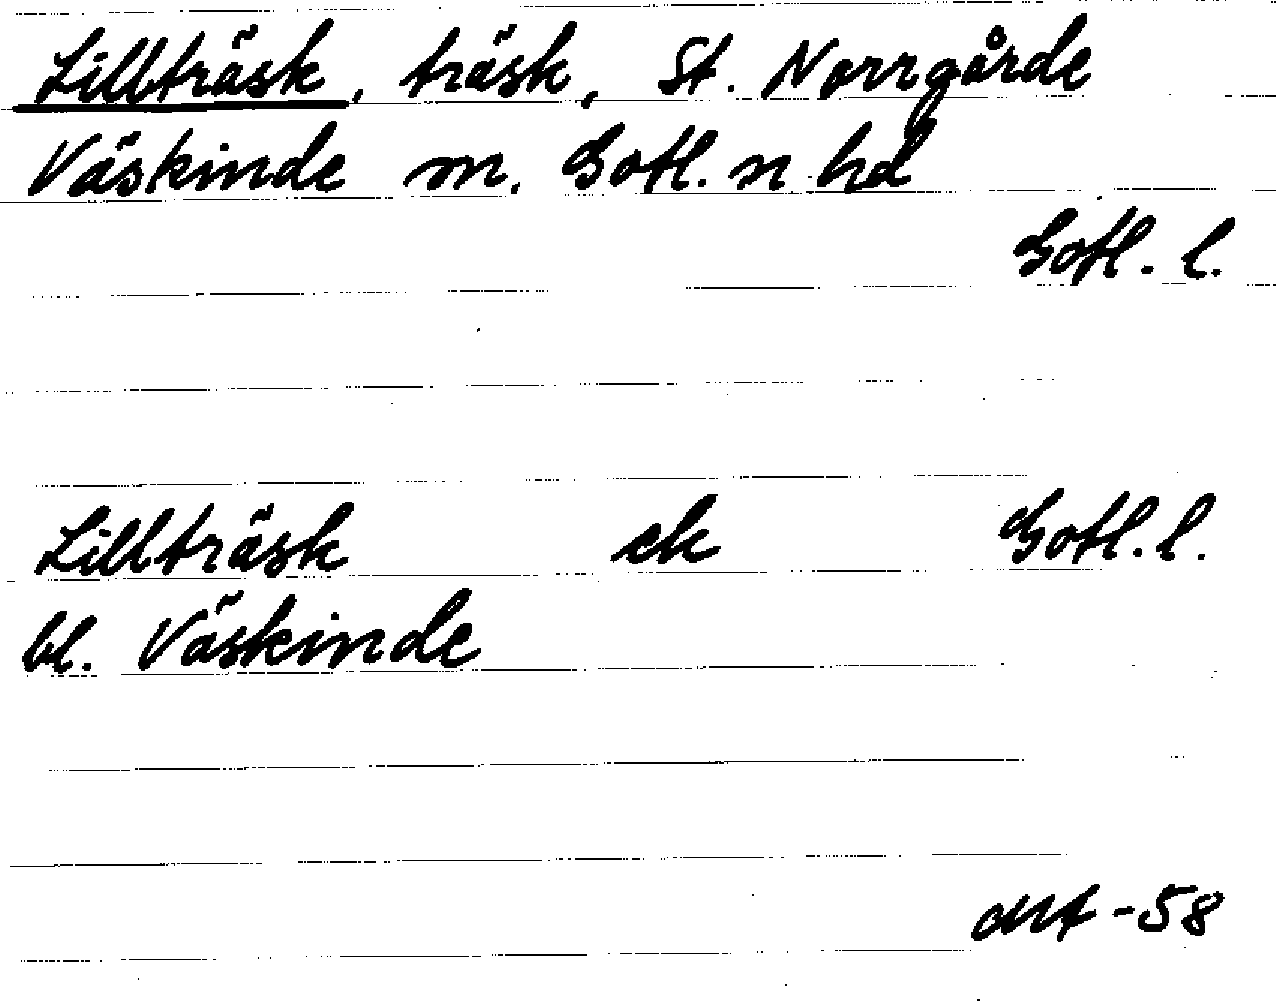 Lillträsk, träsk, St. Norrgårde
Väskinde sn. Gotl. n hd
Gotl. l.
Lillträsk ek Gotl. l.
bl. Väskinde
-58